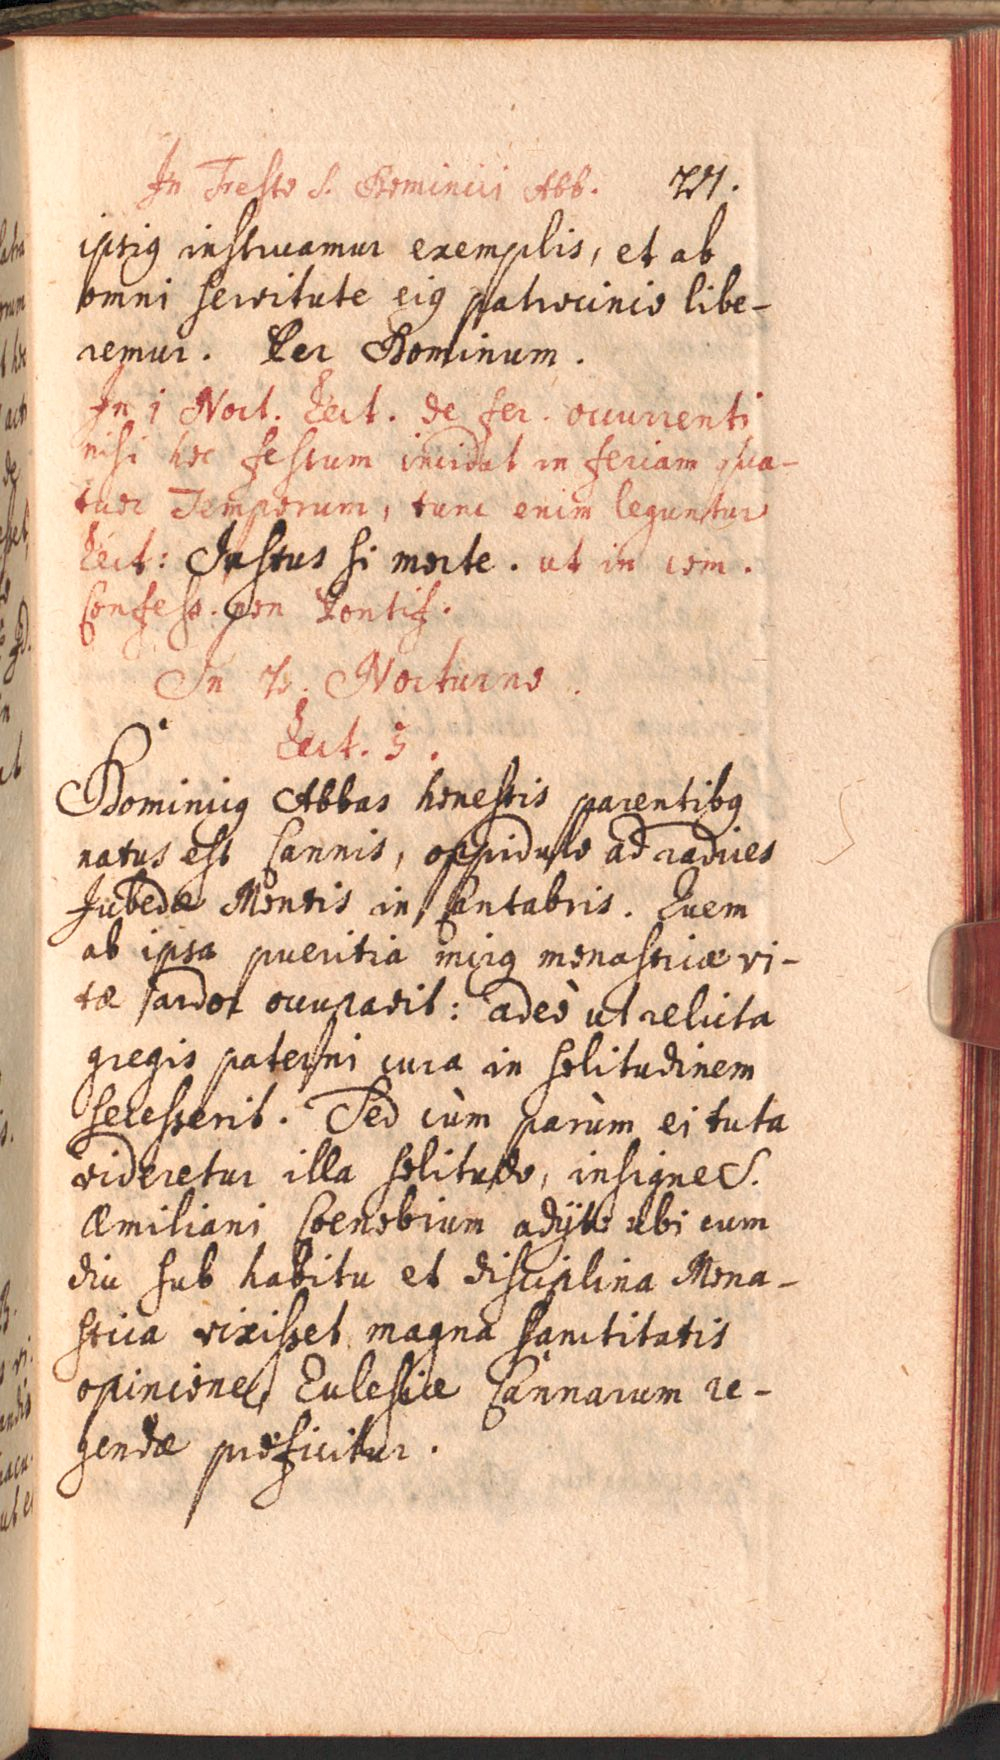 In Festo S. Dominici Abb.
ipsi9 instruamur exemplis, et ab
omni servitute ei9 patrocinio libe-
remur. Per Dominum.
In 1 Noct. Lect. de fer. occurrenti
nisi hoc festum incidat in feriam qua-
tuor Temporum, tunc enim leguntur
Lect: Justus si morte. ut in com.
Confess. non Pontif.
In 2. Nocturno.
Lect. 3.
Dominic9 Abbas honestis parentib9
natus est Cannis, oppidulo ad radices
Jubedæ Montis in Cantabris. Quem
ab ipsa pueritia mir9 monasticæ vi-
tæ ardor occupavit: adeò ut relicta
gregis paterni cura in solitudinem
secesserit. Sed cùm parùm ei tuta
videretur illa solitudo, insigne S.
Æmiliani Coenobium adijt: ubi cum
diu sub habitu et disciplina Mona-
stica vixisset magna sanctitatis
opinione, Ecclesiæ Cannarum re-
gendæ præficitur.